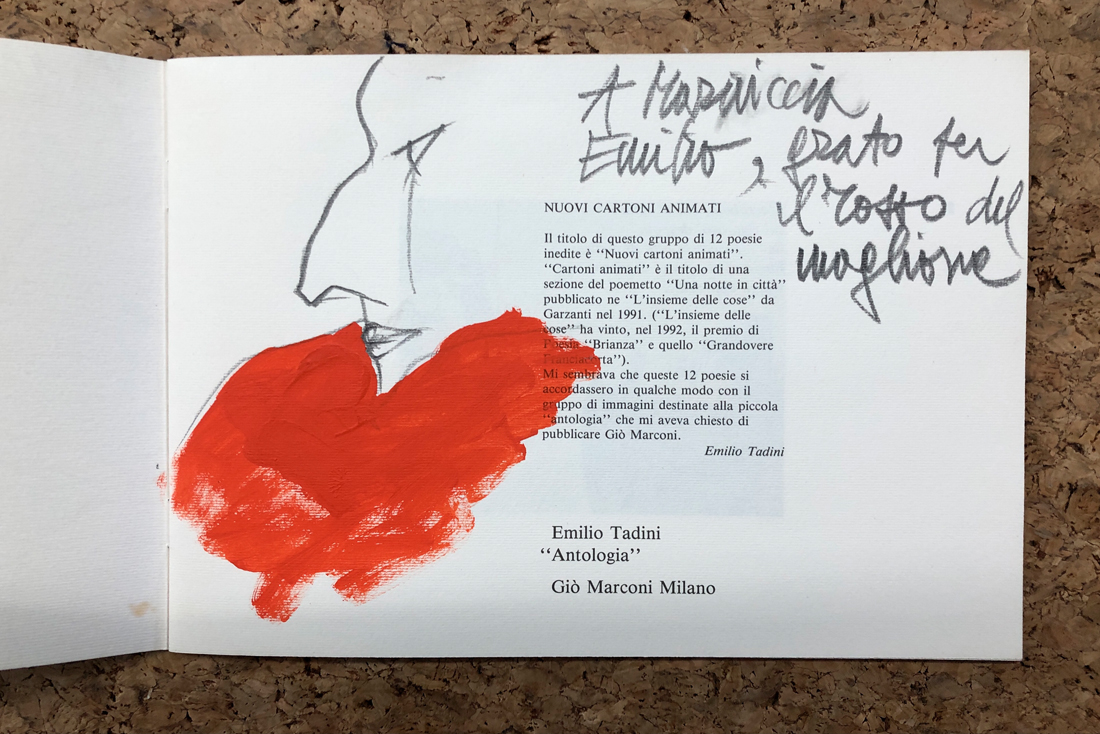 A Mariuccia
Emilio, grato per
il rosso del
maglione
NUOVI CARTONI ANIMATI
Il titolo di questo gruppo di 12 poesie
inedite è ‘‘Nuovi cartoni animati’’.
‘‘Cartoni animati’’ è il titolo di una
sezione del poemetto ‘‘Una notte in città’’
pubblicato ne ‘‘L’insieme delle cose’’ da
Garzanti nel 1991. (‘‘L’insieme delle
cose’’ ha vinto, nel 1992, il premio di
Poesia ‘‘Brianza’’ e quello ‘‘Grandovere
Franciacorta’’).
Mi sembrava che queste 12 poesie si
accordassero in qualche modo con il
gruppo di immagini destinate alla piccola
‘‘antologia’’ che mi aveva chiesto di
pubblicare Giò Marconi.
Emilio Tadini
Emilio Tadini
‘‘Antologia’’
Giò Marconi Milano